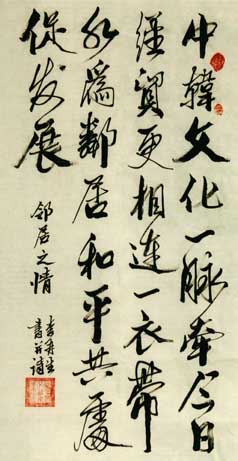 中韓文化一脈牽今日
經貿更相連一衣帶
水爲鄰居和平共處
促发展
邻居之情
書并诗